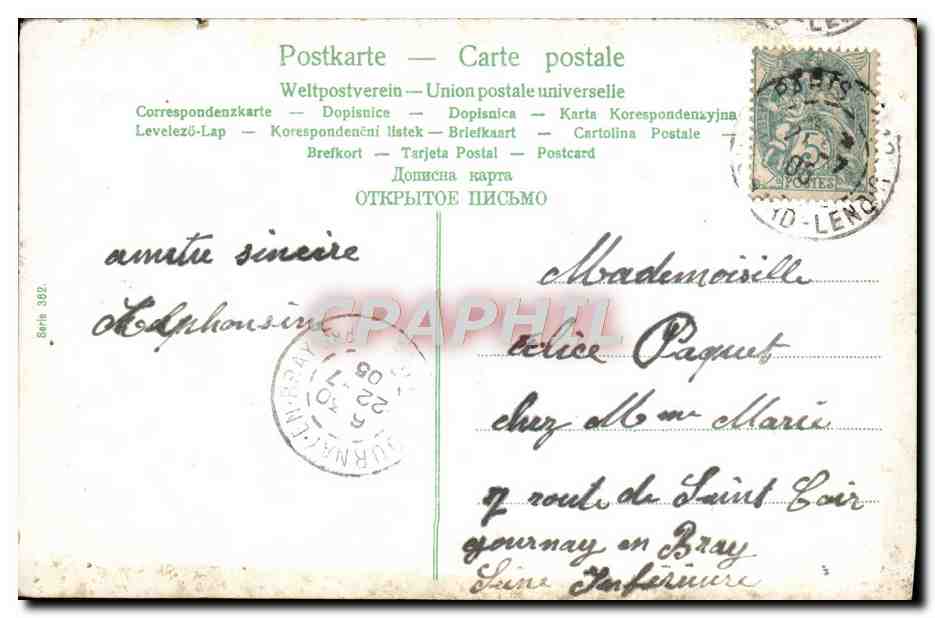 Postkarte — Carte postale
Weltpostverein — Union postale universelle
Correspondenzkarte — Dopisnice — Dopisnica — Karta Korespondencyjna
Levelező-Lap — Korespondenční listek — Briefkaart — Cartolina Postale —
Brefkort — Tarjeta Postal — Postcard
Дописна карта
ОТКРЫТОЕ ПИСЬМО
PARIS
05
BD-LENOI
5
POSTES
Serie 382.
amitie sincère
Alphonsine
GOURNAY-EN-BRAY
6 30
22-7
05
CPAPHIL
Mademoiselle
Alice Paquet
chez Mme Marie
7 route de Saint Clair
gournay en Bray
Seine Inférieure